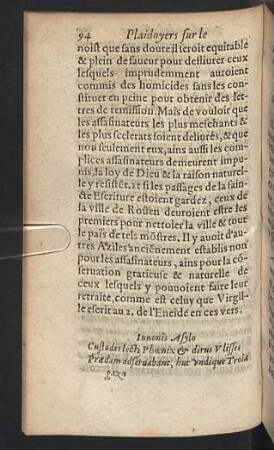 94 Plaidoyers sur le
noist que sans doute il seroit equitable
& plein de faueur pour desliurer ceux
lesquels imprudemment auroient
commis des homicides sans les con-
stituer en peine pour obtenir des let-
tres de remission. Mais de vouloir que
les assasinateurs les plus meschants &
les plus scelerats soient deliurés, & que
non seulement eux, ains aussi les com-
plices assasinateurs demeurent impu-
nis, la loy de Dieu & la raison naturel-
le y resistēt. Et si les passages de la sain-
cte Escriture estoient gardez, ceux de
la ville de Roüen deuroient estre les
premiers pour nettoier la ville & tout
le païs de tels mōstres. Il y auoit d'au-
tres Aziles anciēnement establis non
pour les assasinateurs, ains pour la cō-
seruation gratieuse & naturelle de
ceux lesquels y pouuoient faire leur
retraite, comme est celuy que Virgil-
le escrit au 2. de l'Eneide en ces vers.
Iunonis Asylo
Custodes lecti Phœnix & dirus Vlisses
Prædam adseruabant, huc vndique Troia
gaza